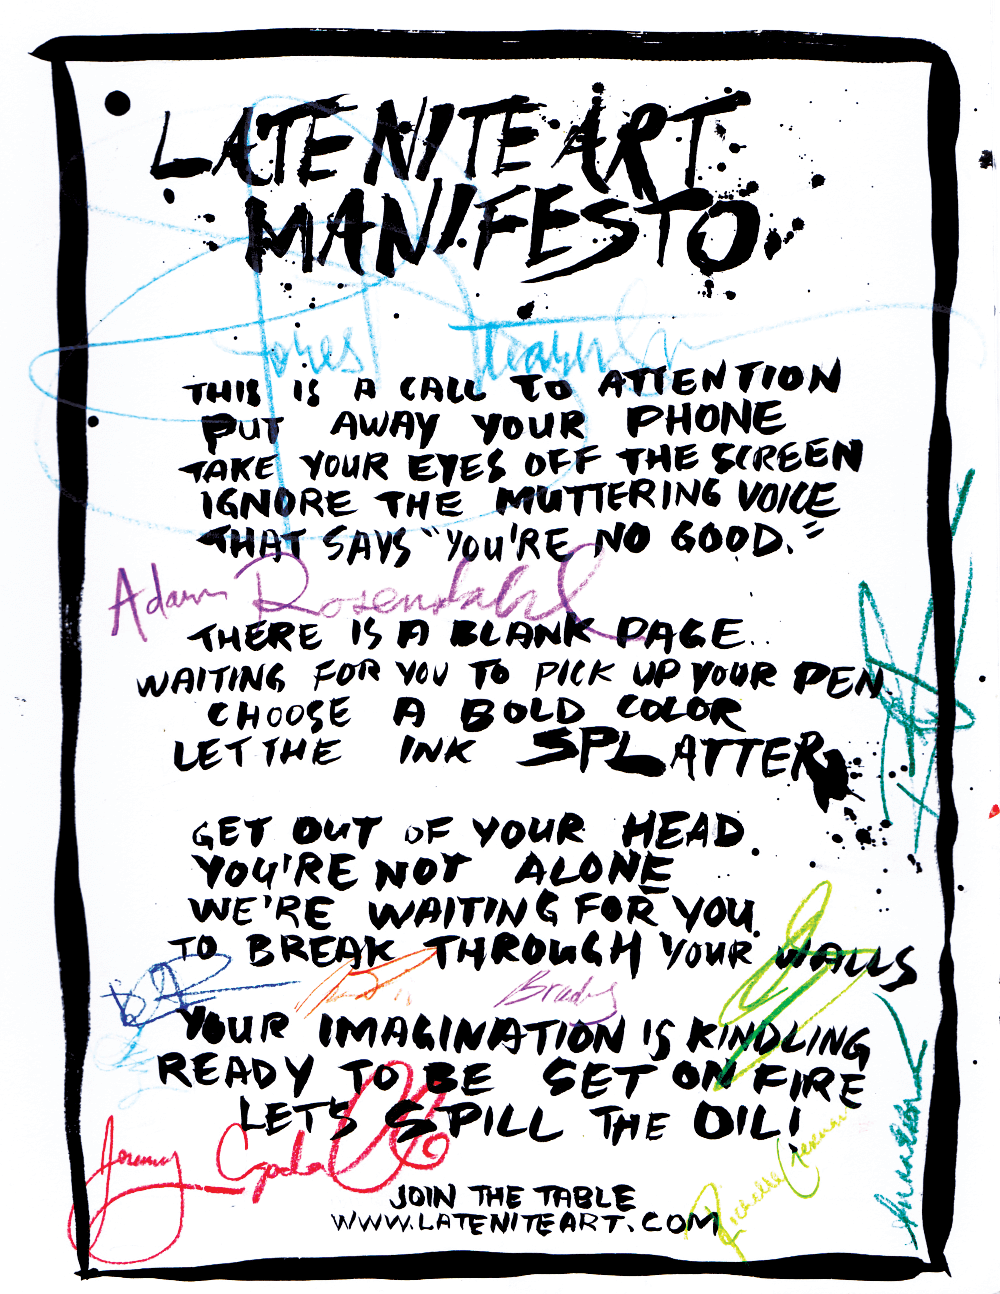 LATE NITE ART
MANIFESTO
THIS IS A CALL TO ATTENTION
PUT AWAY YOUR PHONE
TAKE YOUR EYES OFF THE SCREEN
IGNORE THE MUTTERING VOICE
THAT SAYS "YOU'RE NO GOOD."
Adam Rosendahl
THERE IS A BLANK PAGE..
WAITING FOR YOU TO PICK UP YOUR PEN.
CHOOSE A BOLD COLOR
LET THE INK SPLATTER
GET OUT OF YOUR HEAD
YOU'RE NOT ALONE
WE'RE WAITING FOR YOU.
TO BREAK THROUGH YOUR WALLS
Brady
YOUR IMAGINATION IS KINDLING
READY TO BE SET ON FIRE
LET'S SPILL THE OIL!
Jeremy
JOIN THE TABLE
WWW.LATENITEART.COM